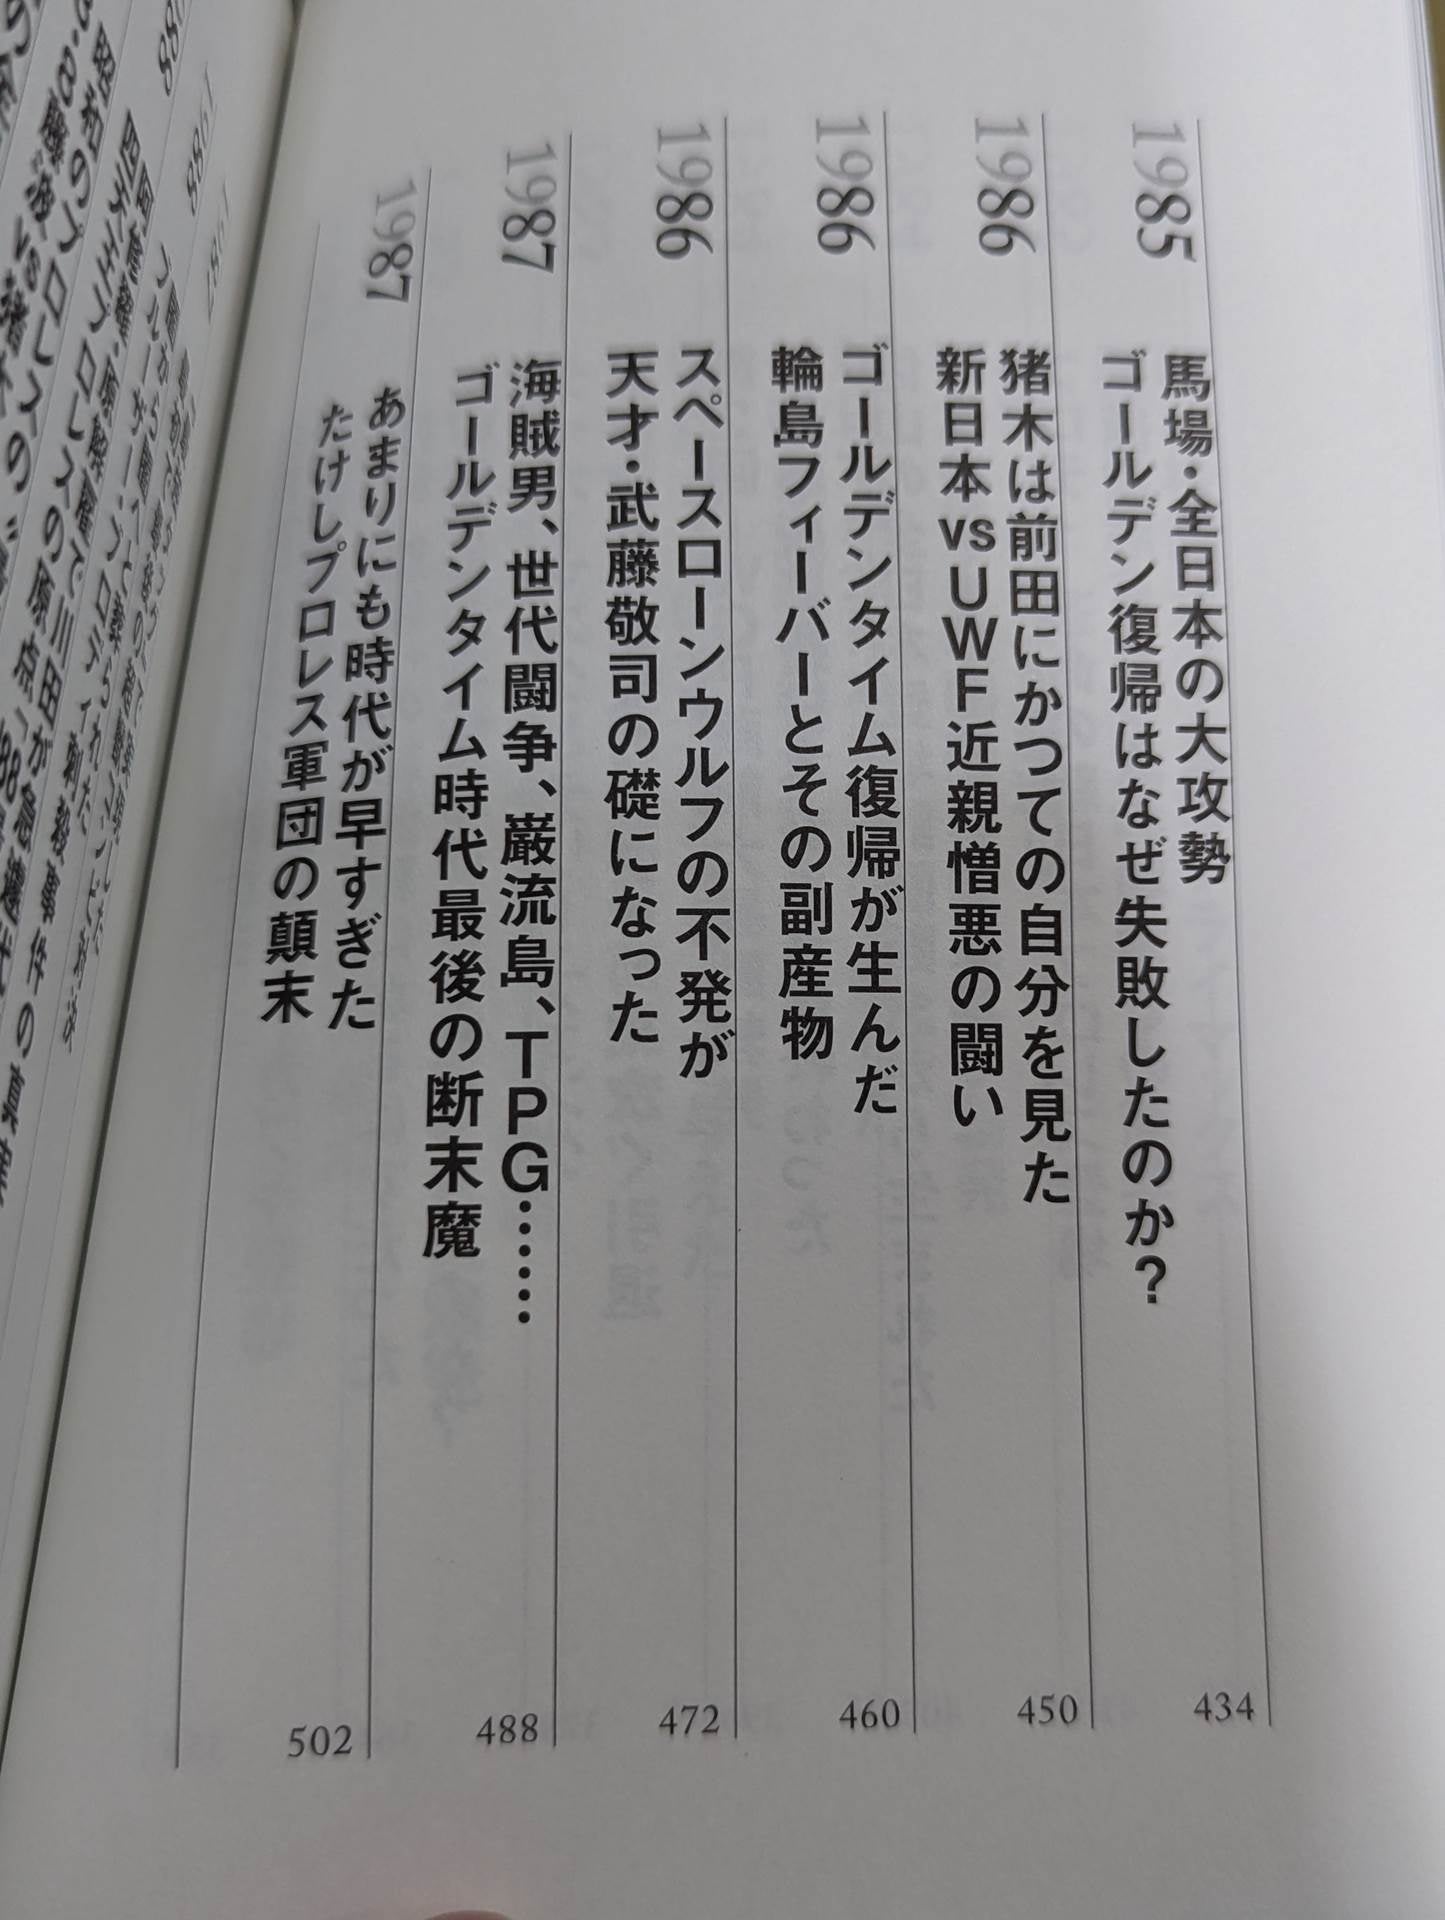 1985
馬場・全日本の大攻勢
ゴールデン復帰はなぜ失敗したのか?
434
1986
猪木は前田にかつての自分を見た
新日本vsUWF近親憎悪の闘い
450
1986
ゴールデンタイム復帰が生んだ
輪島フィーバーとその副産物
460
1986
スペースローンウルフの不発が
天才・武藤敬司の礎になった
472
1987
海賊男、世代闘争、巌流島、TPG……
ゴールデンタイム時代最後の断末魔
488
1987
あまりにも時代が早すぎた
たけしプロレス軍団の顛末
502
1987
1988